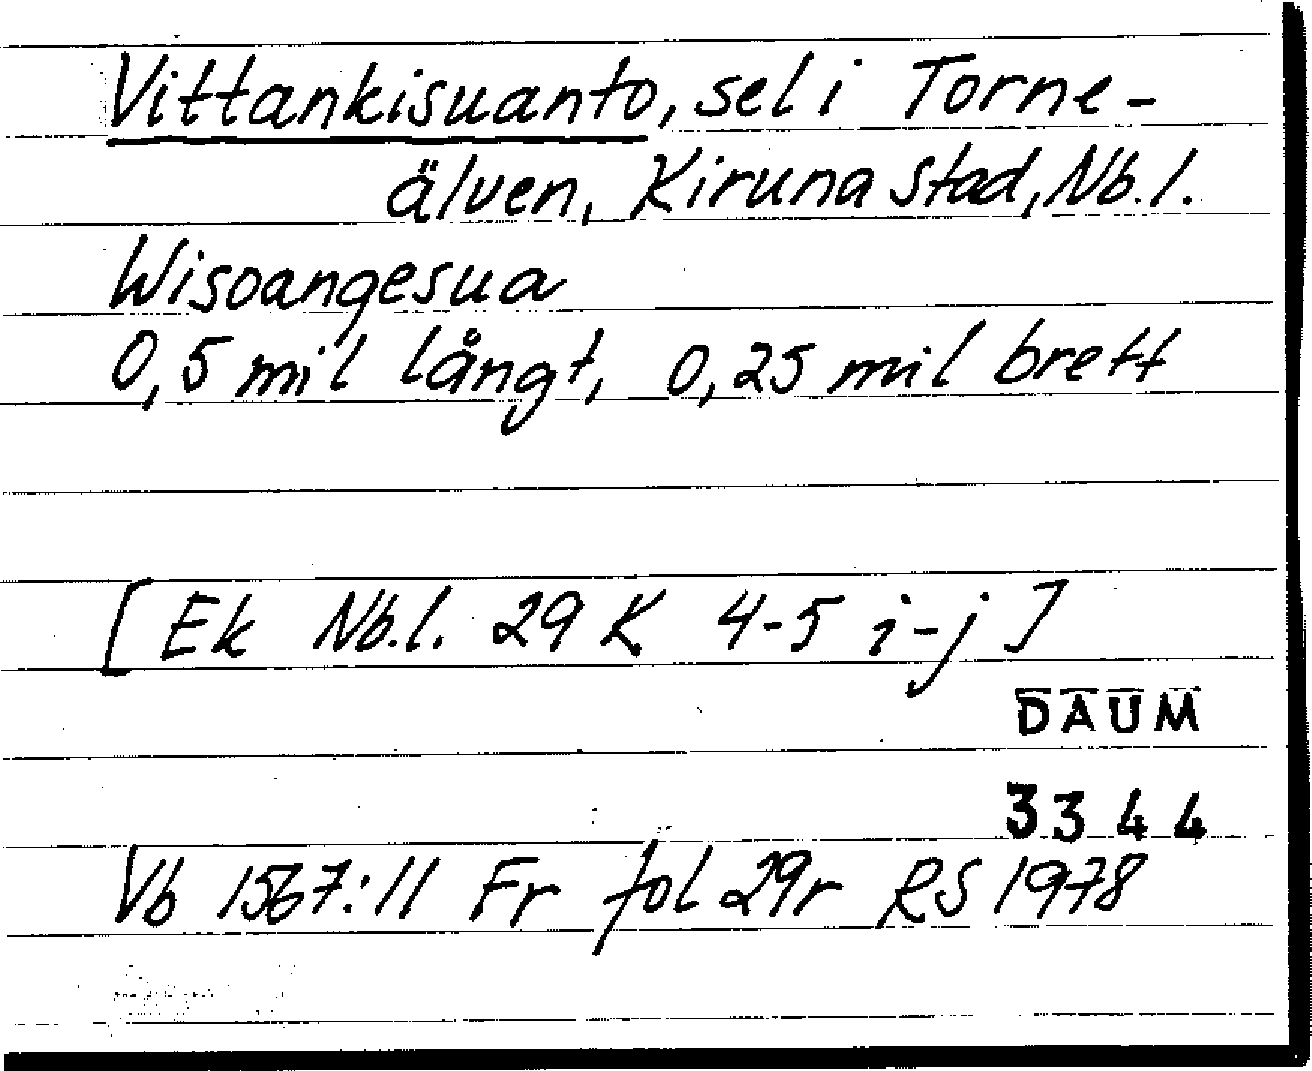 Vittankisuanto, sel i Torne-
älven, Kiruna stad, Nb.l.
Wisoangesua
0,5 mil långt, 0,25 mil brett
[Ek Nb.l. 29 K 4-5 i-j]
DAUM
3344
Vb 1567:11 Fr fol 29r RS 1978